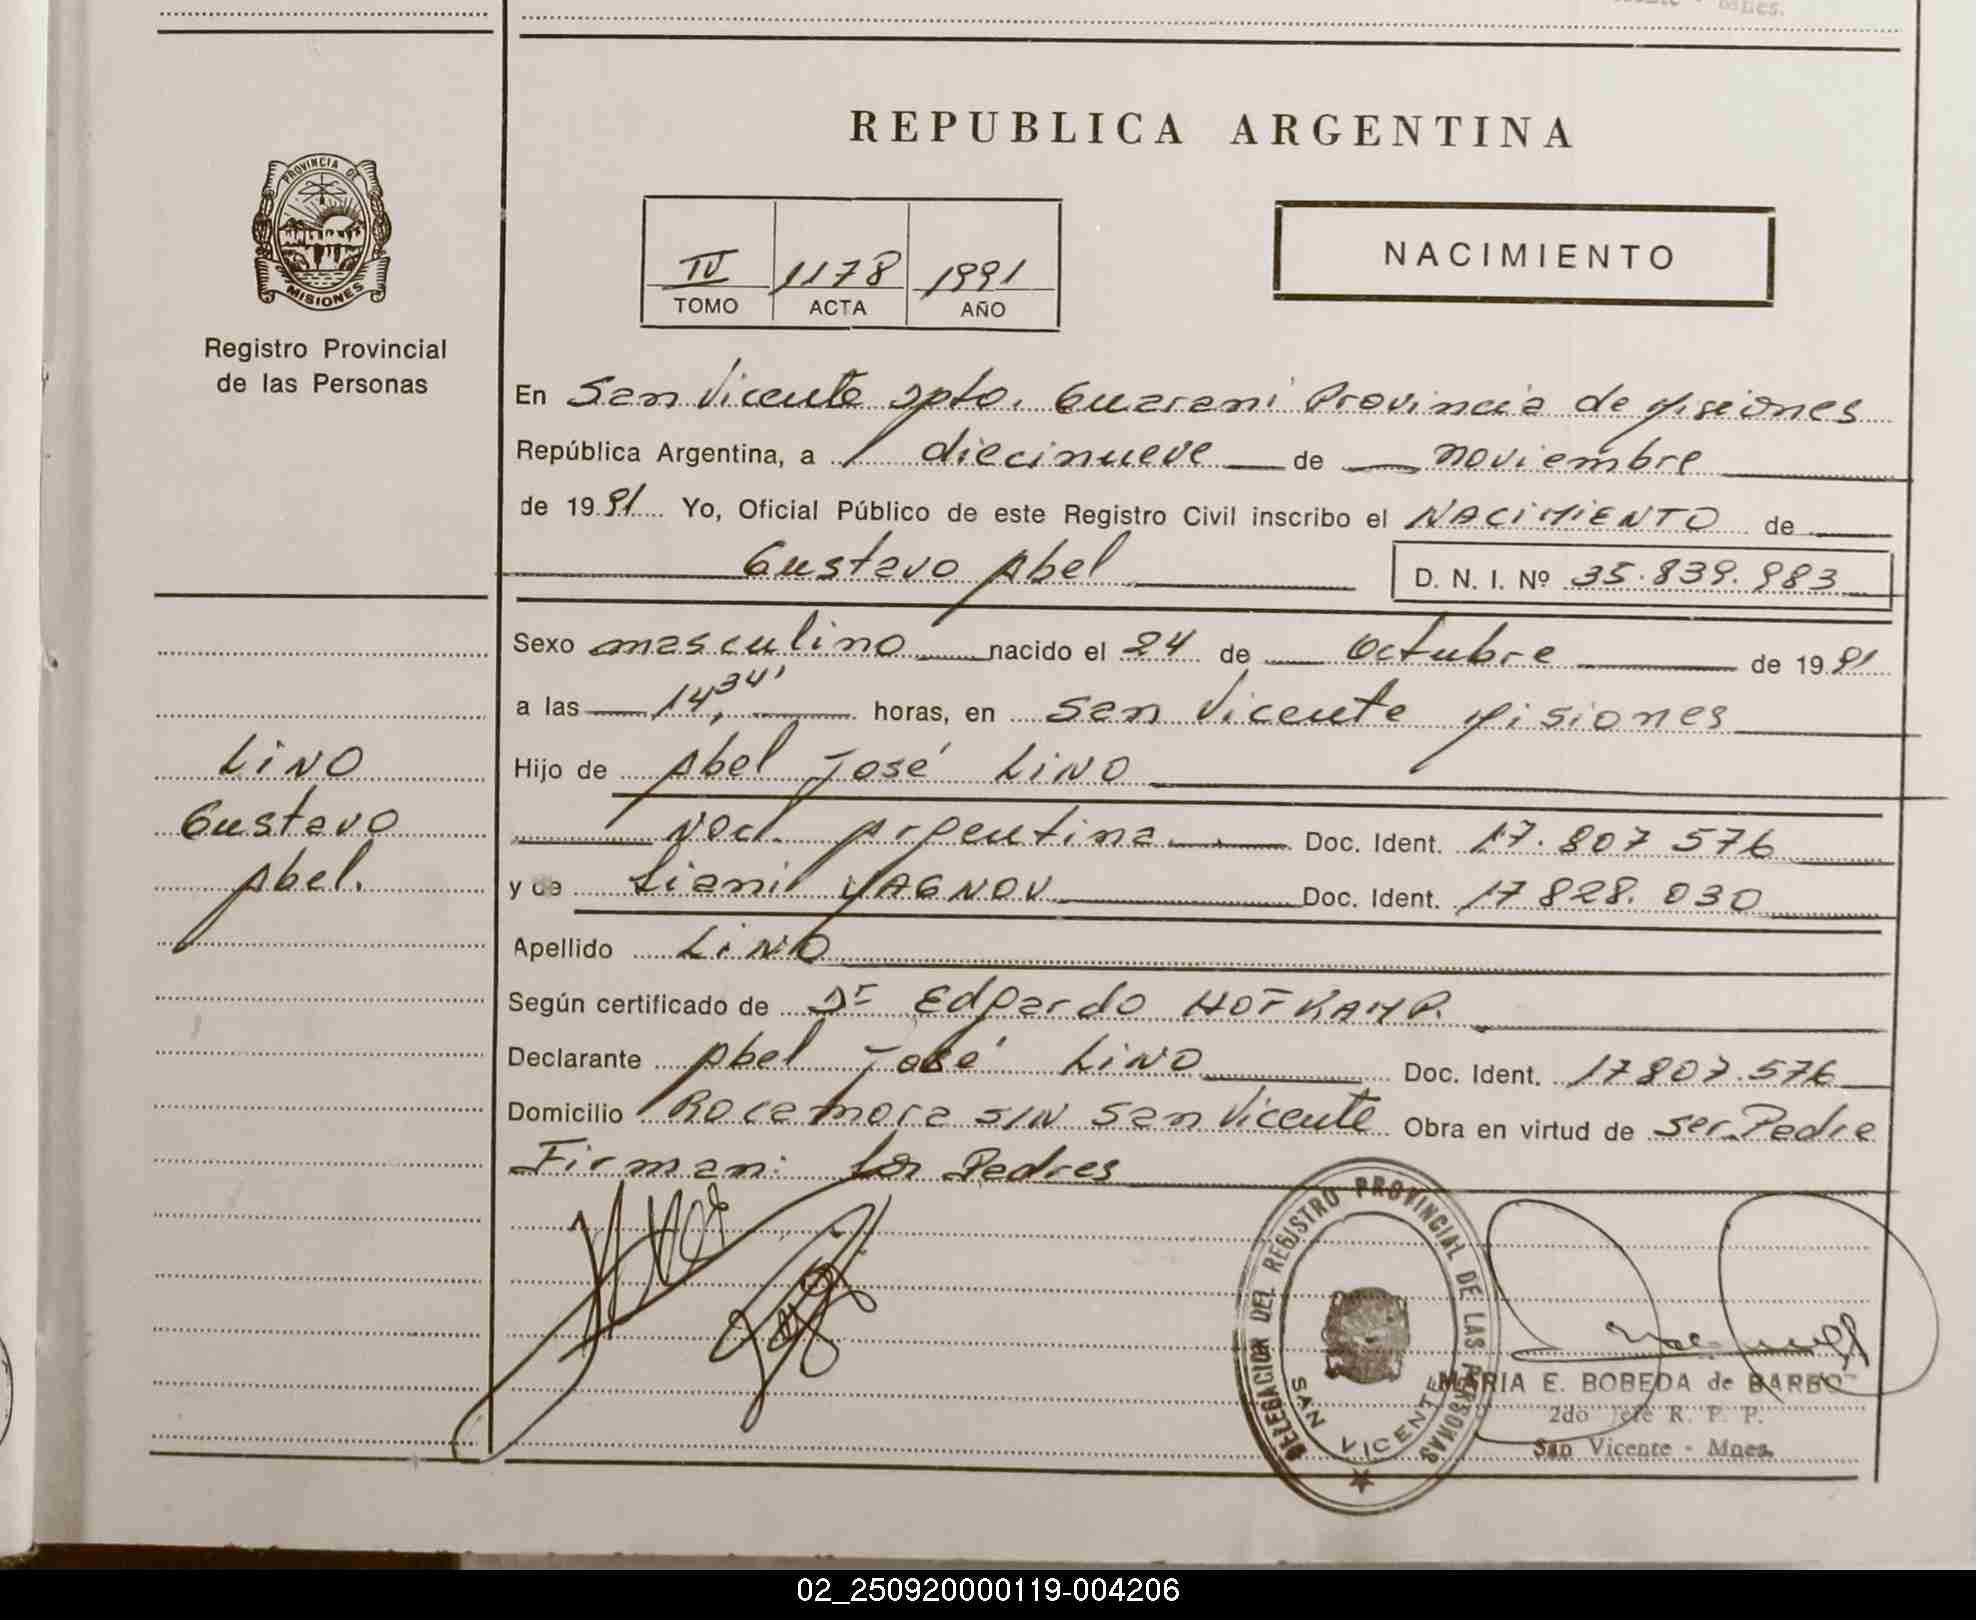 PROVINCIA DE
MISIONES
Registro Provincial
de las Personas
LINO
Gustavo
Abel.
REPUBLICA ARGENTINA
IV 1178 1991
TOMO ACTA AÑO
NACIMIENTO
En San Vicente Dpto. Guarani Provincia de Misiones
República Argentina, a diecinueve de noviembre
de 1991 Yo, Oficial Público de este Registro Civil inscribo el NACIMIENTO de
Gustavo Abel D. N. I. Nº 35.839.983
Sexo masculino nacido el 24 de Octubre de 1991
a las 14,34' horas, en San Vicente Misiones
Hijo de Abel José LINO
Nacl. Argentina Doc. Ident. 17.807 576
y de Liani YAGNOV Doc. Ident. 17 828. 030
Apellido LINO
Según certificado de Dr Edgardo HOFKAMP.
Declarante Abel José LINO Doc. Ident. 17807.576
Domicilio Rocamora S/N San Vicente Obra en virtud de ser Padre
Firman: los Padres
DELEGACION DEL REGISTRO PROVINCIAL DE LAS PERSONAS
SAN VICENTE
MARIA E. BOBEDA de BARBO
2do Jefe R. P. P.
San Vicente - Mnes.
02_250920000119-004206